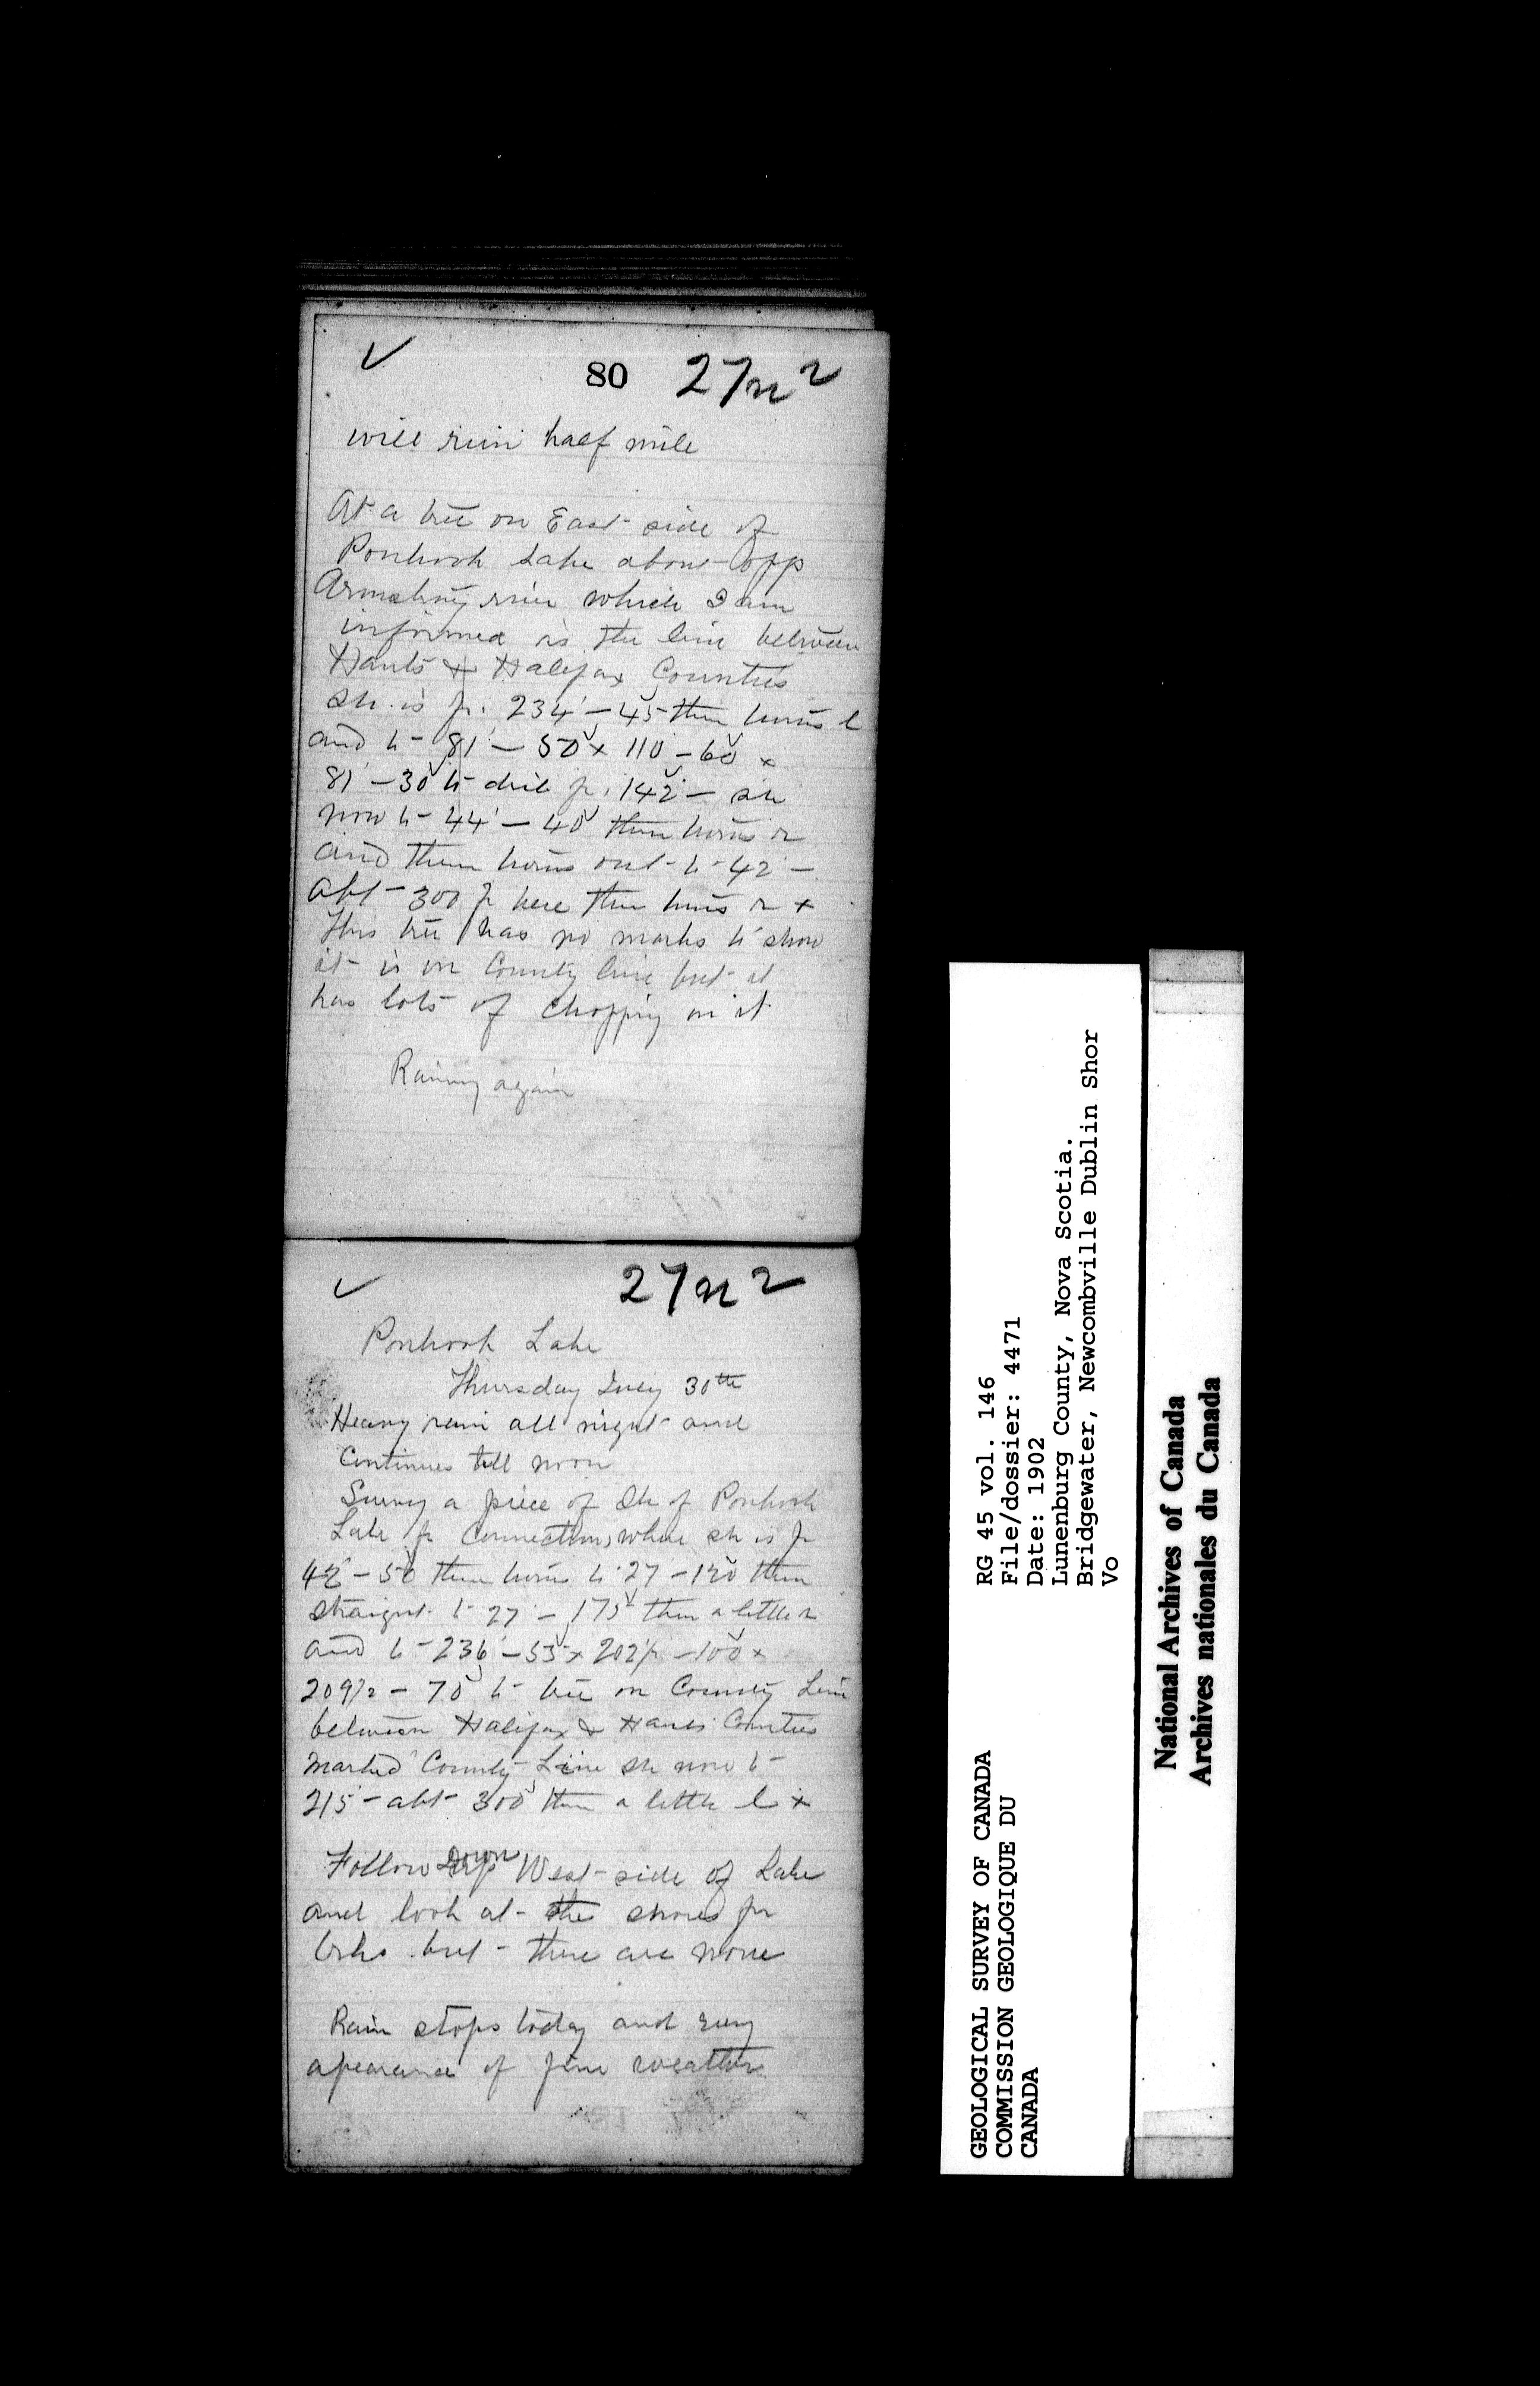 ✓ 80 27n2
will run half mile
At a tree on East side of
Ponhook Lake about opp
Armstrong river which I am
informed is the line between
Hants & Halifax Counties
sh. is fr. 234° – 45 then turns l
and to 81° – 50 x 110 – 60 x
81° – 30 to fr. 142° – sh
now to 44° – 40 then turns r
and then turns out to 42° –
abt 300 fr here then turns r x
This tree has no marks to show
it is on County line but it
has lots of chopping on it
Raining again
✓ 27n2
Ponhook Lake
Thursday July 30th
Heavy rain all night and
Continues till noon
Survey a piece of Sh of Ponhook
Lake fr connections where sh is fr
42° – 50 then turns to 27 – 120 then
straight to 27 – 175 then a little r
and to 236° – 55 x 202½ – 100 x
209½ – 70 to tree on County Line
between Halifax & Hants Counties
marked County Line sh now to
215 – abt 300 then a little l x
Follow Down West side of Lake
and look at the shores for
but there are none
Rain stops today and every
apearance of fine weather
RG 45 vol. 146
File/dossier: 4471
Date: 1902
Lunenburg County, Nova Scotia.
Bridgewater, Newcombville Dublin Shor
Vo
GEOLOGICAL SURVEY OF CANADA
COMMISSION GEOLOGIQUE DU
CANADA
National Archives of Canada
Archives nationales du Canada